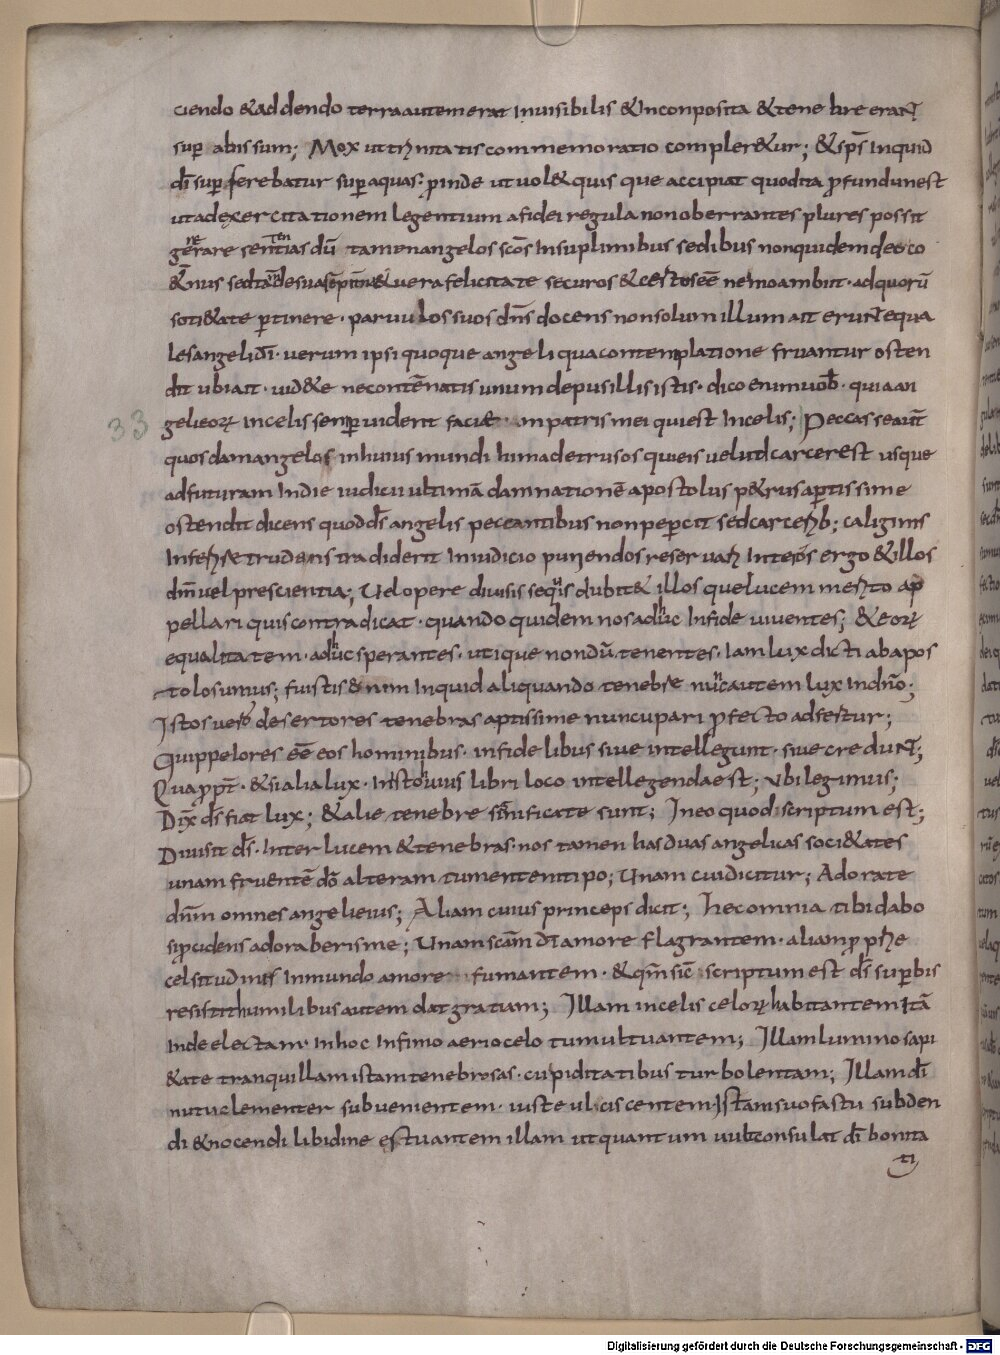 ciendo & addendo terra autem erat Inuisibilis & Inconposita & tene bre eraNT
sup abissum; Mox ut trinitatis commemoratio compler&ur; & sp̄s Inquid
dī sup ferebatur sup aquas; pinde ut uol& quis que accipiat quod ita pfundum est
ut ad exercitationem legentium a fidei regula non oberrantes plures possit
generare sententias dū tamen angelos scōs In suplimibus sedibus non quidem deo co
&nus sed tam de sua & uera felicitate securos & certos eē nemo ambiit · ad quorū
soti&ate ptinere · paruulos suos dn̄s docens non solum illum ait eruNT equa
les angeli dī · uerum ipsi quoque angeli qua contemplatione fruantur osten
dit ubi ait · uid&e ne contēnatis unum de pusillis istis · dico enim uob · quia an
geli eorꝝ In celis semp uident faciē patris mei qui est In celis; Peccasse aut̄
quosdam angelos in huius mundi hima detrusos qui eis uelud carcer est usque
ad futuram In die iudicii ultimā damnationē apostolus p&rus aptissime
ostendit dicens quod ds̄ angelis peccantibus non pepcit sed carcerib; caliginis
Inferi & trudens tradiderit In iudicio puniendos reseruari Inter os ergo & illos
dīm uel prescientia; Uel opere diuisis se quis dubit& illos que lucem merito ap
pellari quis contradicat · quando quidem nos adhuc In fide uiuentes; & eorꝝ
equalitatem · adhuc sperantes · utique nondū tenentes · Iam lux dicti ab apos
tolo sumus; fuistis &nim Inquid aliquando tenebre nūc autem lux In dn̄o;
Istos uero desertores tenebras aptissime nuncupari pfecto adfertur;
Qui ppe lores eē eos hominibus · infidelibus siue intellegunt · siue creduNT;
Quappt̄ · & si alia lux · In isto huius libri loco intellegenda est; Ubi legimus;
Dix̄ ds̄ fiat lux; & alie tenebre significate sunt; In eo quod scriptum est;
Diuisit ds̄ · Inter lucem & tenebras · nos tamen has duas angelicas soci&ates
unam fruentē dō alteram tumentem tipo; Unam cui dicitur; Adorate
dn̄m omnes angeli eius; Aliam cuius princeps dicit; hec omnia tibi dabo
si pcidens adoraberis me; Unam scām dī amore flagrantem · aliam pprie
celsitudinis Inmundo amore fumantem · & qm̄ sic̄ scriptum est ds̄ supbis
resistit humilibus autem dat gratiam; Illam in celis celorꝝ habitantem Istā
Inde electam In hoc Infimo aerio celo tumultuantem; Illam luminosa pi
&ate tranquillam istam tenebrosas · cupiditatibus turbolentam; Illam dī
nutu clementer subuenientem · iuste ulciscentem Istam suo fastu subden
di & nocendi libidine estuantem illam ut quantum uult consulat dī bonita
ti
33
Digitalisierung gefördert durch die Deutsche Forschungsgemeinschaft - DFG